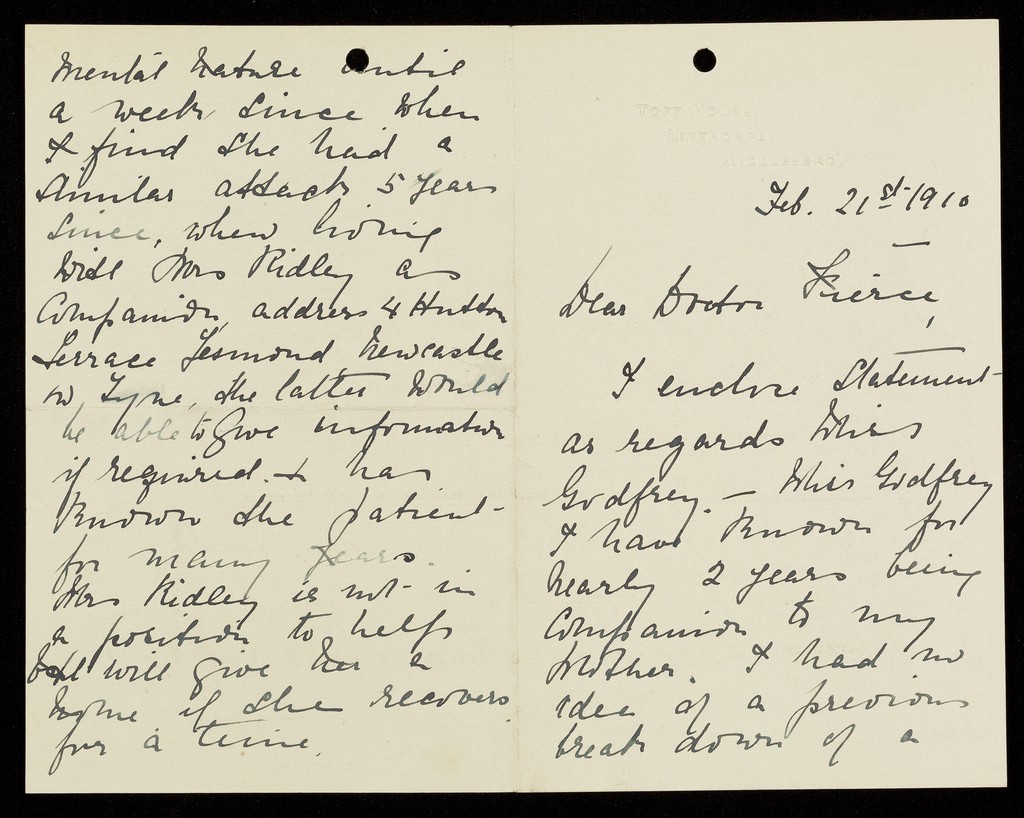 Feb. 21st 1910
Dear Doctor Pierce,
I enclose Statement
as regards Miss
Godfrey. — Miss Godfrey
I have known for
nearly 2 years being
Companion to my
Mother. I had no
idea of a previous
break down of a
mental nature until
a week since when
I find she had a
similar attack 5 years
since, when living
with Mrs Ridley as
Companion, address 4 Hutton
Terrace Jesmond, Newcastle
on Tyne, the latter would
be able to give information
if required. & has
known the patient
for many years.
Mrs Ridley is not in
a position to help
but will give her a
home if she recovers
for a time.